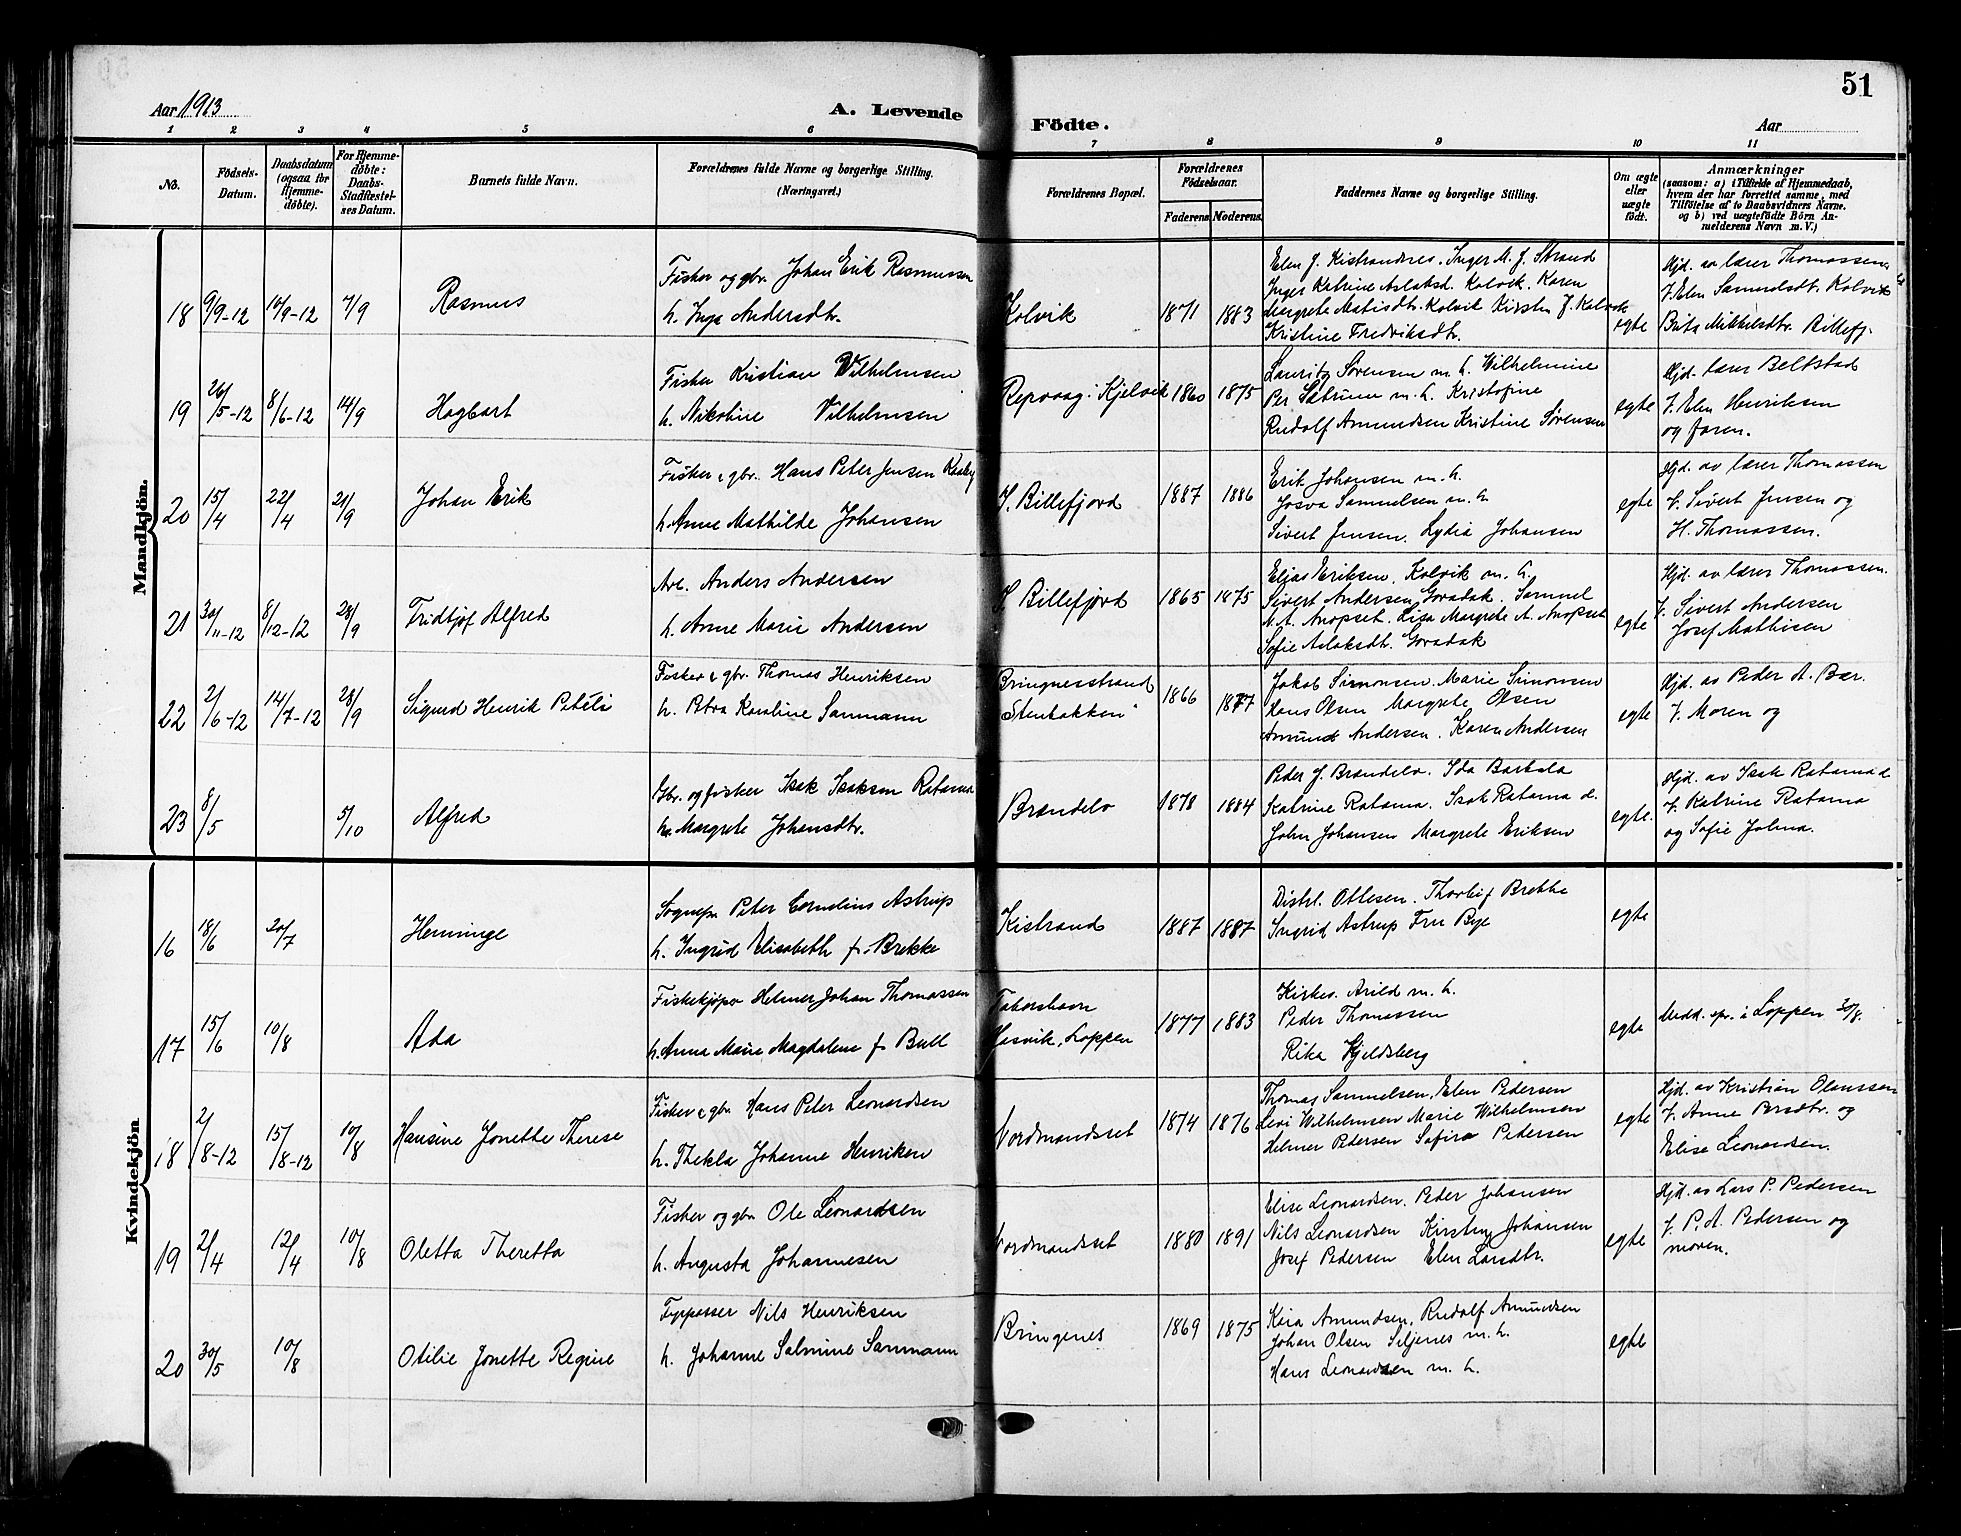 51
Aar 1913
A. Levende Födte.
Aar
1 2 3 4 5 6 7 8 9 10 11
No.
Födsels-Datum.
Daabsdatum (ogsaa for Hjemmedöbte).
For Hjemmedöbte: Daabs-Stadfæstelses Datum.
Barnets fulde Navn.
Forældrenes fulde Navne og borgerlige Stilling. (Næringsvei.)
Forældrenes Bopæl.
Forældrenes Födselsaar.
Faderens Moderens
Faddernes Navne og borgerlige Stilling.
Om ægte eller uægte födt.
Anmærkninger
(saasom: a) i Tilfælde af Hjemmedaab, hvem der har forrettet samme, med Tilföielse af to Daabsvidners Navne. og b) ved uægtefödte Börn Anmelderens Navn m. V.)
Mandkjön.
18 9/9-12 10/9-12 7/9 Rasmus
Fisker og gbr. Johan Erik Rasmussen
h. Inga Andersdtr.
Kolvik 1871 1883
Elen J. Kistrandnes. Inger M. J. Strand
Inger Katrine Aslaksd. Kolvik. Karen
Margrete Matisdtr. Kolvik Kirsten J. Kolvik
Kristine Fredriksdtr.
egte
Hjd. av lærer Thomassen
V. Elen Samuelsdt. Kolvik
Brita Mikkelsdtr. Billefj.
19 26/5-12 8/6-12 14/9 Hagbart
Fisker Kristian Wilhelmsen
h. Nikoline Vilhelmsen
Repvaag i Kjelvik 1860 1875
Lauritz Sørensen m. h. Wilhelmine
Per Sætrum m. h. Kristofine
Rudolf Amundsen Kristine Sørensen
egte
Hjd. lærer Belkstad
V. Elen Henriksen
og faren.
20 15/4 22/4 21/9 Johan Erik
Fisker & gbr. Hans Peter Jensen
h. Anne Mathilde Johansen
S. Billefjord 1887 1886
Erik Johansen m. h.
Josva Samuelsen m. h.
Sivert Jensen. Lydia Johansen
egte
Hjd. av lærer Thomassen
V. Sivert Jensen og
H. Thomassen.
21 30/11-12 8/12-12 28/9 Fridtjof Alfred
Arb. Anders Andersen
h. Anne Marie Andersen
S. Billefjord 1865 1875
Elias Eriksen, Kolvik m. h.
Sivert Andersen Goradak. Samuel
M. A. Anopset. Lisa Margrete A. Anopset
Sofie Aslaksdt. Goradak
egte
Hjd. av lærer Thomassen.
V. Sivert Andersen
Josef Mathisen
22 2/6-12 14/7-12 28/9 Sigurd Henrik
Fisker & gbr. Thomas Henriksen
h. Petra Karoline Sanmann
Bringnesstrand
"Stenbakken" 1866 1877
Jakob Simonsen, Marie Simonsen
Hans Olsen Margrete Olsen
Amund Andersen. Karen Andersen
egte
Hjd. av Peder A. Bær.
V. Moren og
23 8/5 5/10 Alfred
Gbr. og fisker Isak Isaksen Ratama
h. Margrete Johansdtr.
Brændelv 1878 1884
Peder J. Brændelv. Ida Barkala
Katrine Ratama. Isak Ratama d.
John Johansen Margrete Eriksen
egte.
Hjd. av Isak Ratama d.
V. Katrine Ratama
og Sofie Jolma.
Kvindekjön
16 18/6 20/7 Henninge
Sognepr. Peter Cornelius Astrup
h. Ingrid Elisabeth f. Brekke
Kistrand 1887 1887
Distrl. Ottesen. Thorleif Brekke
Ingrid Astrup Fru Bye
egte
17 15/6 10/8 Ada
Fiskekjøper Helmer Johan Thomassen
h. Anna Marie Magdalene f. Bull
Hasvik, Loppen 1877 1883
Kirkes. Arild m. h.
Peder Thomassen
Rika Kjeldsberg
egte
Medd. spr. i Loppen 30/8.
18 2/8-12 15/8-12 10/8 Hansine Jonette Therese
Fisker & gbr. Hans Peter Leonardsen
h. Thekla Johanne Henriksen
Nordmandset 1874 1876
Thomas Samuelsen, Elen Pedersen
Levi Wilhelmsen Marie Wilhelmsen
Helmer Pedersen Safira Pedersen
egte
Hjd. av Kristian Olaussen
V. Anne Persdtr. og
Elise Leonardsen.
19 2/4 12/4 10/8 Oletta Theretta
Fisker og gbr. Ole Leonardsen
h. Augusta Johannesen
Nordmandset 1880 1891
Elise Leonardsen. Peder Johansen
Nils Leonardsen Kirsten Johansen
Josef Pedersen Elen Larsdtr.
egte
Hjd. av Lars P. Pedersen
V. P. A. Pedersen og
moren.
20 30/5 10/8 Otilie Jonette Regine
Fyrpasser Nils Henriksen
h. Johanne Salmine Sanmann
Bringenes 1869 1875
Kaia Amundsen, Rudolf Amundsen
Johan Olsen Seljenes m. h.
Hans Leonardsen m. h.
egte